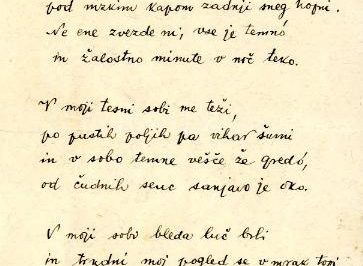 pod mrzlim kapom zadnji sneg kopni.
Ne ene zvezde ni; vse je temnó
in žalostno minute v noč tekó.
V moji tesni sobi me teži,
po pustih poljih pa vihar šumi
in v sobo temne vešče že gredó,
od čudnih senc sanjavo je oko.
V moji sobi bleda luč brli
in trudni moj pogled se v mrak topi